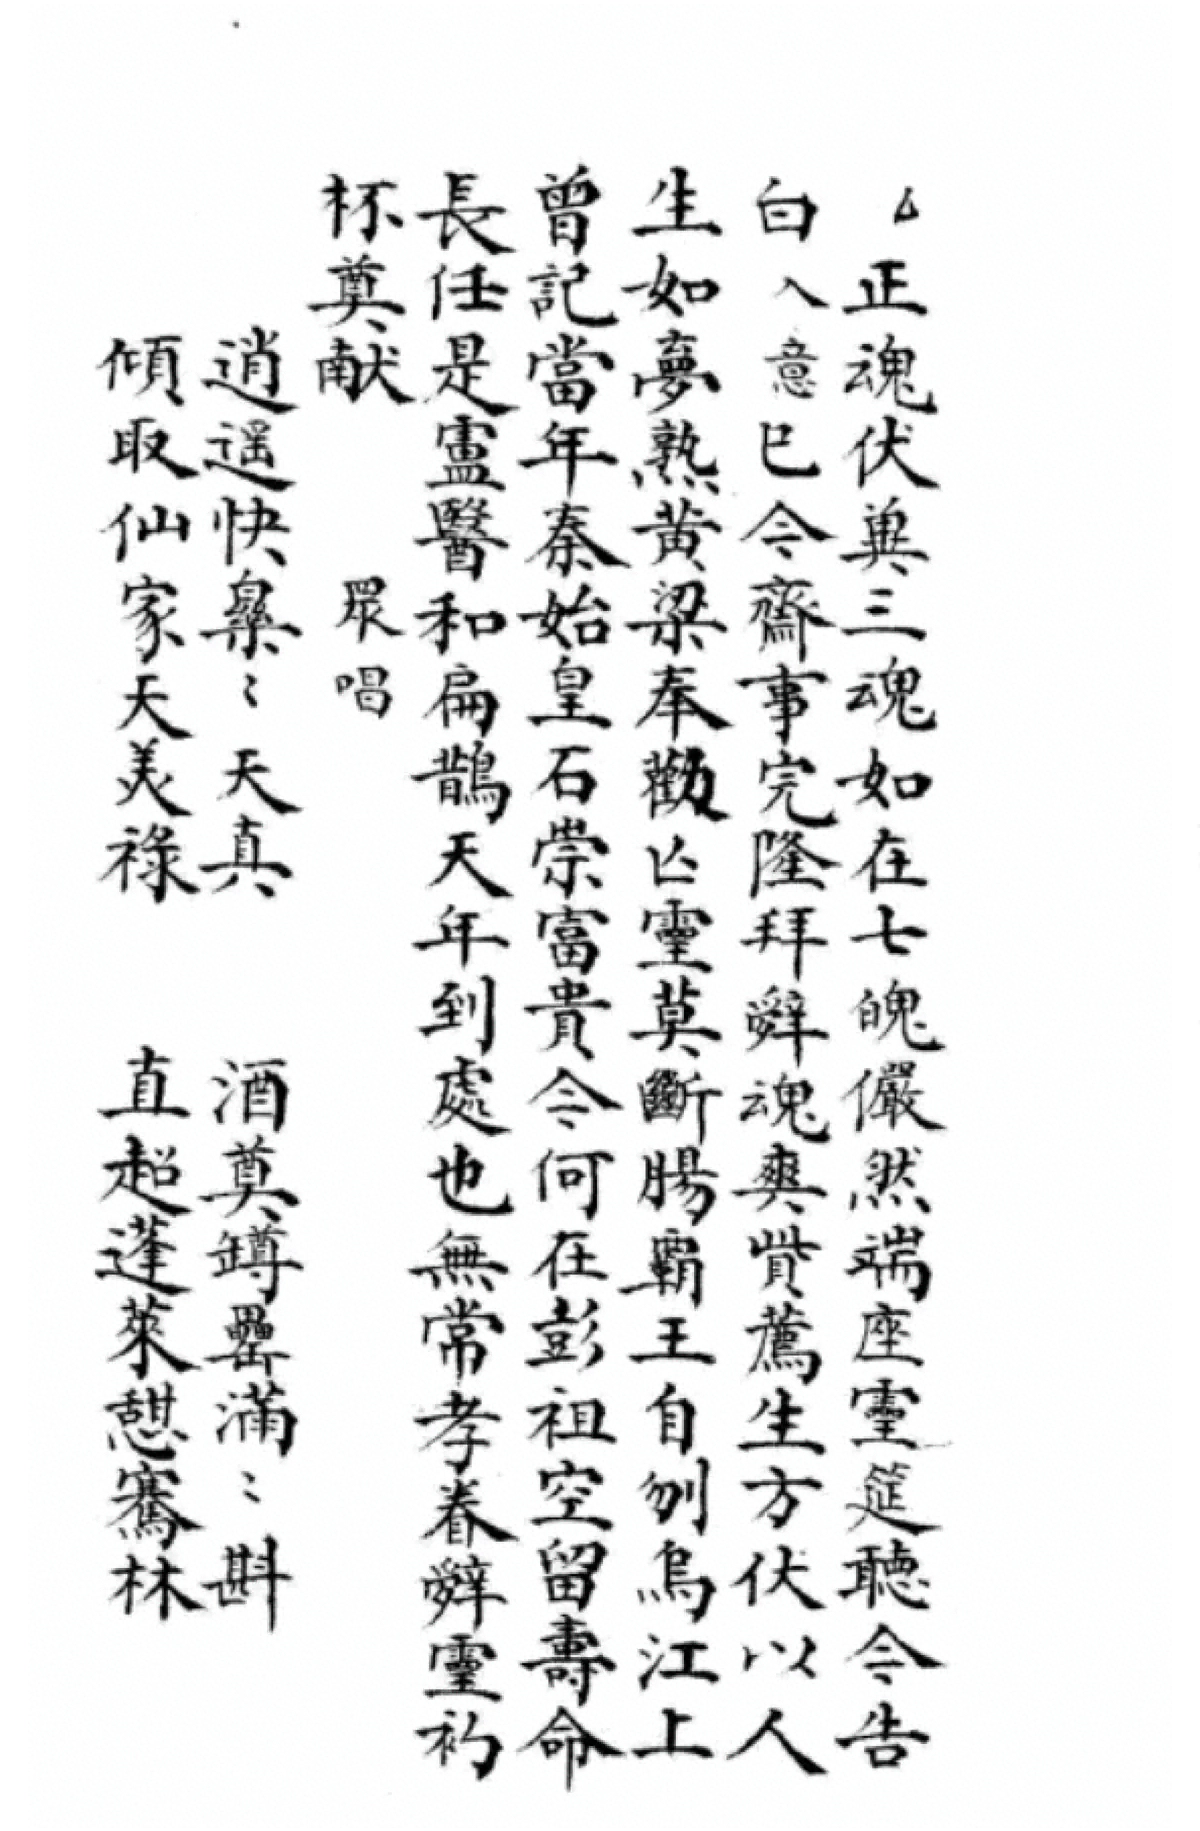 厶正魂伏與三魂如在七魄儼然端座靈筵聽今告
白入意已今齋事完隆拜辤魂奭貲薦生方伏以人
生如夢熟黄梁奉勸亾靈莫斷腸霸王自刎烏江上
曾記當年秦始皇石崇富貴今何在彭祖空留壽命
長任是盧醫和扁鵲天年到處也無常孝眷辤靈礿
杯奠献 眾唱
逍遥快樂〻天真 酒奠罇罍滿〻斟
傾取仙家天美祿 直超蓬萊憇騫林